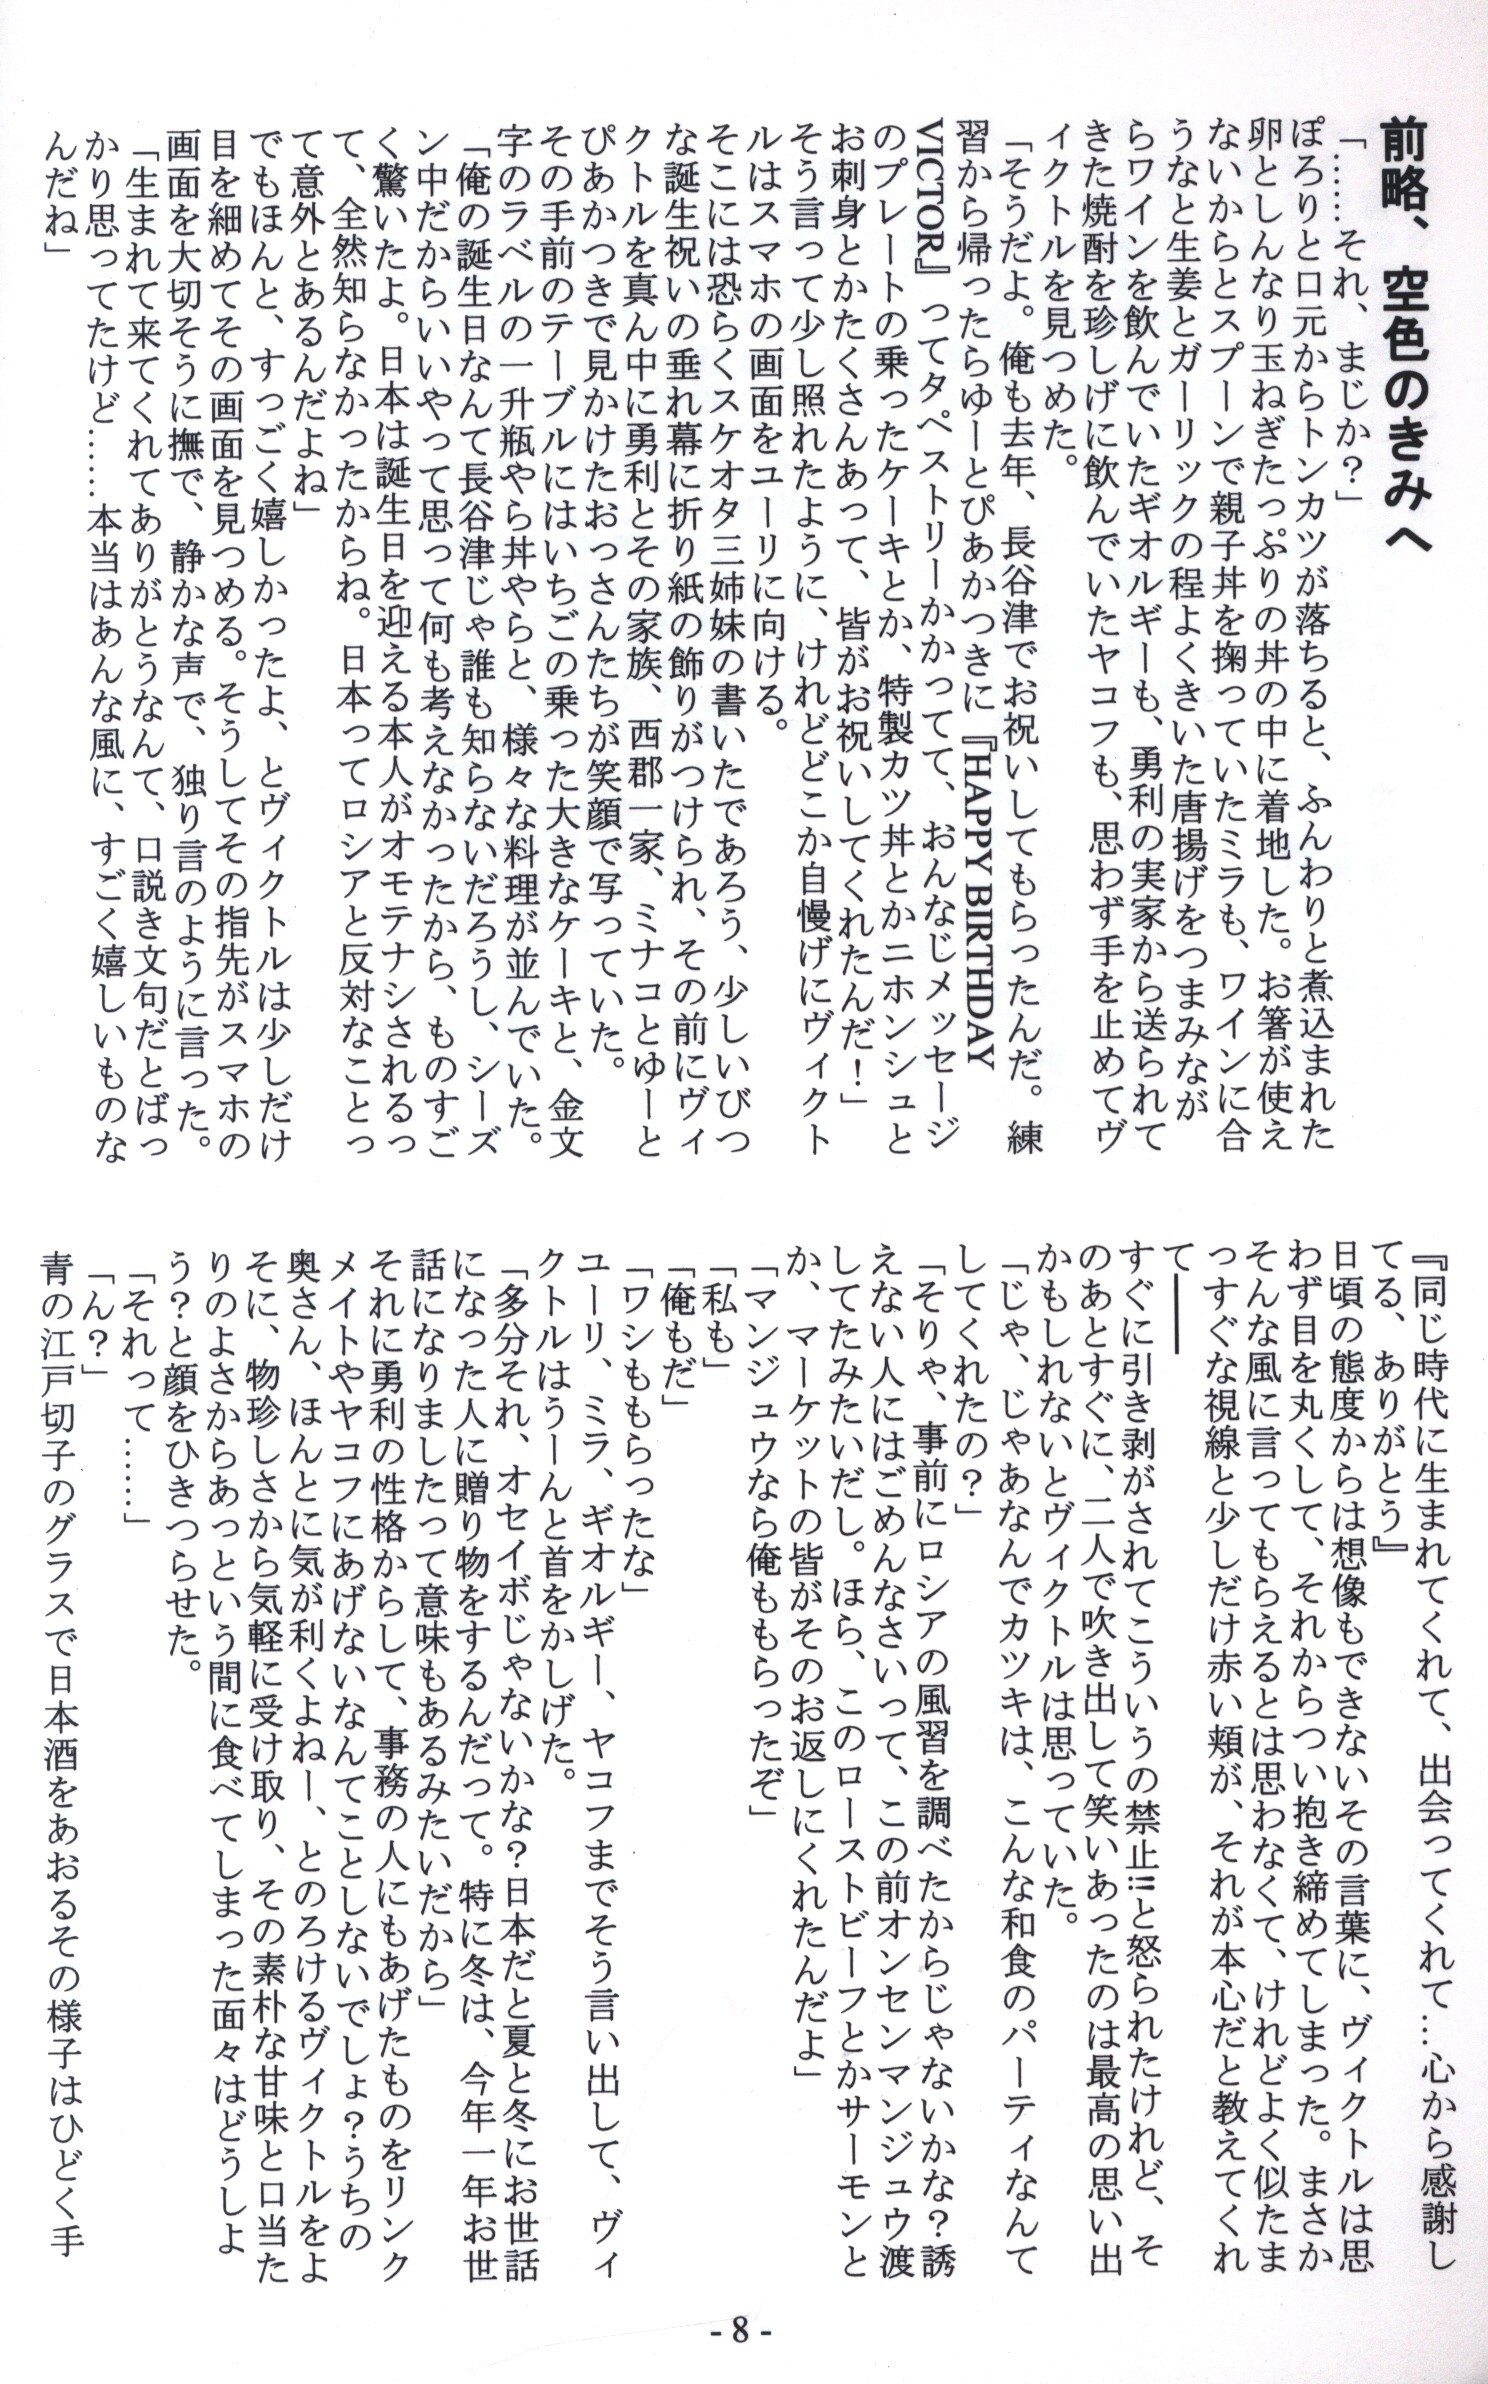 前略、空色のきみへ
「……それ、まじか？」
ぽろりと口元からトンカツが落ちると、ふんわりと煮込まれた
卵としんなり玉ねぎたっぷりの丼の中に着地した。お箸が使え
ないからとスプーンで親子丼を掬っていたミラも、ワインに合
うなと生姜とガーリックの程よくきいた唐揚げをつまみなが
らワインを飲んでいたギオルギーも、勇利の実家から送られて
きた焼酎を珍しげに飲んでいたヤコフも、思わず手を止めてヴ
ィクトルを見つめた。
「そうだよ。俺も去年、長谷津でお祝いしてもらったんだ。練
習から帰ったらゆーとぴあかつきに『HAPPY BIRTHDAY
VICTOR』ってタペストリーかかってて、おんなじメッセージ
のプレートの乗ったケーキとか、特製カツ丼とかニホンシュと
お刺身とかたくさんあって、皆がお祝いしてくれたんだ！」
そう言って少し照れたように、けれどどこか自慢げにヴィクト
ルはスマホの画面をユーリに向ける。
そこには恐らくスケオタ三姉妹の書いたであろう、少しいびつ
な誕生祝いの垂れ幕に折り紙の飾りがつけられ、その前にヴィ
クトルを真ん中に勇利とその家族、西郡一家、ミナコとゆーと
ぴあかつきで見かけたおっさんたちが笑顔で写っていた。
その手前のテーブルにはいちごの乗った大きなケーキと、金文
字のラベルの一升瓶やら丼やらと、様々な料理が並んでいた。
「俺の誕生日なんて長谷津じゃ誰も知らないだろうし、シーズ
ン中だからいいやって思って何も考えなかったから、ものすご
く驚いたよ。日本は誕生日を迎える本人がオモテナシされるっ
て、全然知らなかったからね。日本ってロシアと反対なことっ
て意外とあるんだよね」
でもほんと、すっごく嬉しかったよ、とヴィクトルは少しだけ
目を細めてその画面を見つめる。そうしてその指先がスマホの
画面を大切そうに撫で、静かな声で、独り言のように言った。
「生まれて来てくれてありがとうなんて、口説き文句だとばっ
かり思ってたけど……本当はあんな風に、すごく嬉しいものな
んだね」
『同じ時代に生まれてくれて、出会ってくれて…心から感謝し
てる、ありがとう』
日頃の態度からは想像もできないその言葉に、ヴィクトルは思
わず目を丸くして、それからつい抱き締めてしまった。まさか
そんな風に言ってもらえるとは思わなくて、けれどよく似たま
っすぐな視線と少しだけ赤い頬が、それが本心だと教えてくれ
て――
すぐに引き剥がされてこういうの禁止!!と怒られたけれど、そ
のあとすぐに、二人で吹き出して笑いあったのは最高の思い出
かもしれないとヴィクトルは思っていた。
「じゃ、じゃあなんでカツキは、こんな和食のパーティなんて
してくれたの？」
「そりゃ、事前にロシアの風習を調べたからじゃないかな？誘
えない人にはごめんなさいって、この前オンセンマンジュウ渡
してたみたいだし。ほら、このローストビーフとかサーモンと
か、マーケットの皆がそのお返しにくれたんだよ」
「マンジュウなら俺ももらったぞ」
「私も」
「俺もだ」
「ワシももらったな」
ユーリ、ミラ、ギオルギー、ヤコフまでそう言い出して、ヴィ
クトルはうーんと首をかしげた。
「多分それ、オセイボじゃないかな？日本だと夏と冬にお世話
になった人に贈り物をするんだって。特に冬は、今年一年お世
話になりましたって意味もあるみたいだから」
それに勇利の性格からして、事務の人にもあげたものをリンク
メイトやヤコフにあげないなんてことしないでしょ？うちの
奥さん、ほんとに気が利くよねー、とのろけるヴィクトルをよ
そに、物珍しさから気軽に受け取り、その素朴な甘味と口当た
りのよさからあっという間に食べてしまった面々はどうしよ
う？と顔をひきつらせた。
「それって……」
「ん？」
青の江戸切子のグラスで日本酒をあおるその様子はひどく手
- 8 -